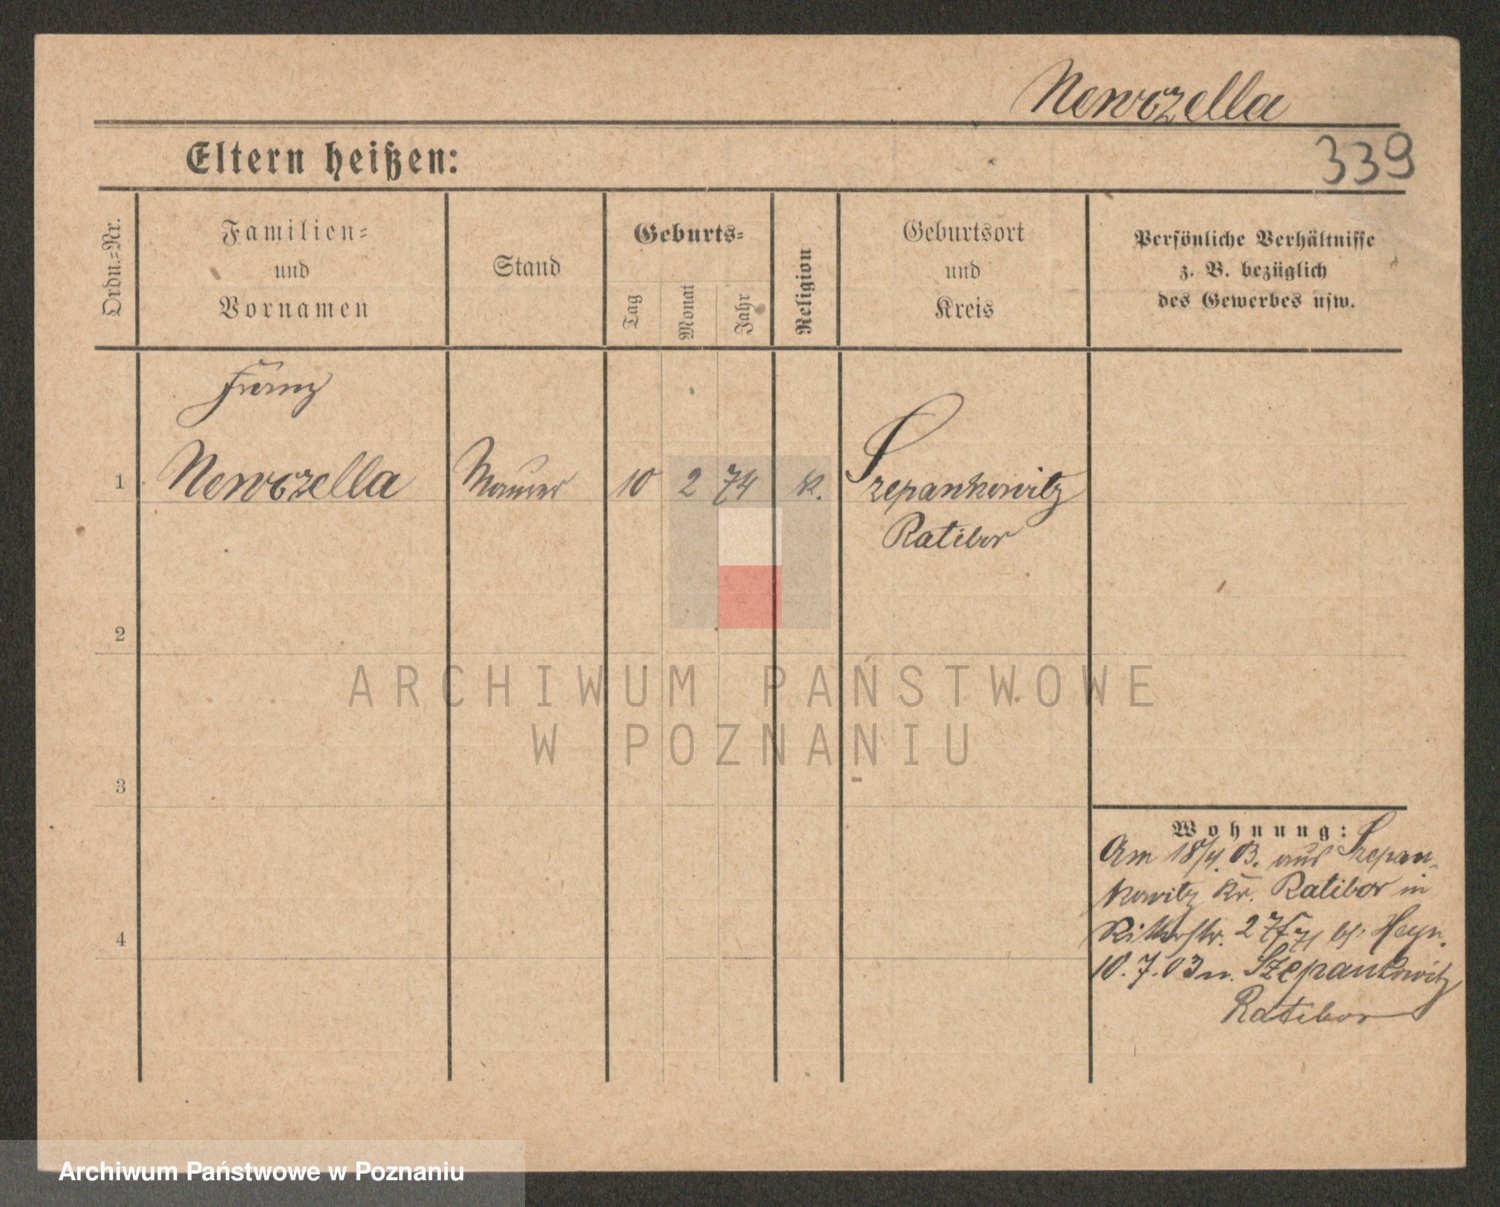 Newczella
Eltern heißen:
339
Ordn.=Nr.
Familien=
und
Vornamen
Stand
Geburts=
Tag
Monat
Jahr
Religion
Geburtsort
und
Kreis
Persönliche Verhältnisse
z. B. bezüglich
des Gewerbes usw.
Franz
1 Newczella Maurer 10 2 74 K. Szepankowitz
Ratibor
2
3
4
Wohnung:
Am 18/4. 03. aus Szepan-
kowitz Kr. Ratibor in
Ritterstr. 27 bei Heyn.
10.7.03 n. Szepankowitz
Ratibor
ARCHIWUM PAŃSTWOWE
W POZNANIU
Archiwum Państwowe w Poznaniu